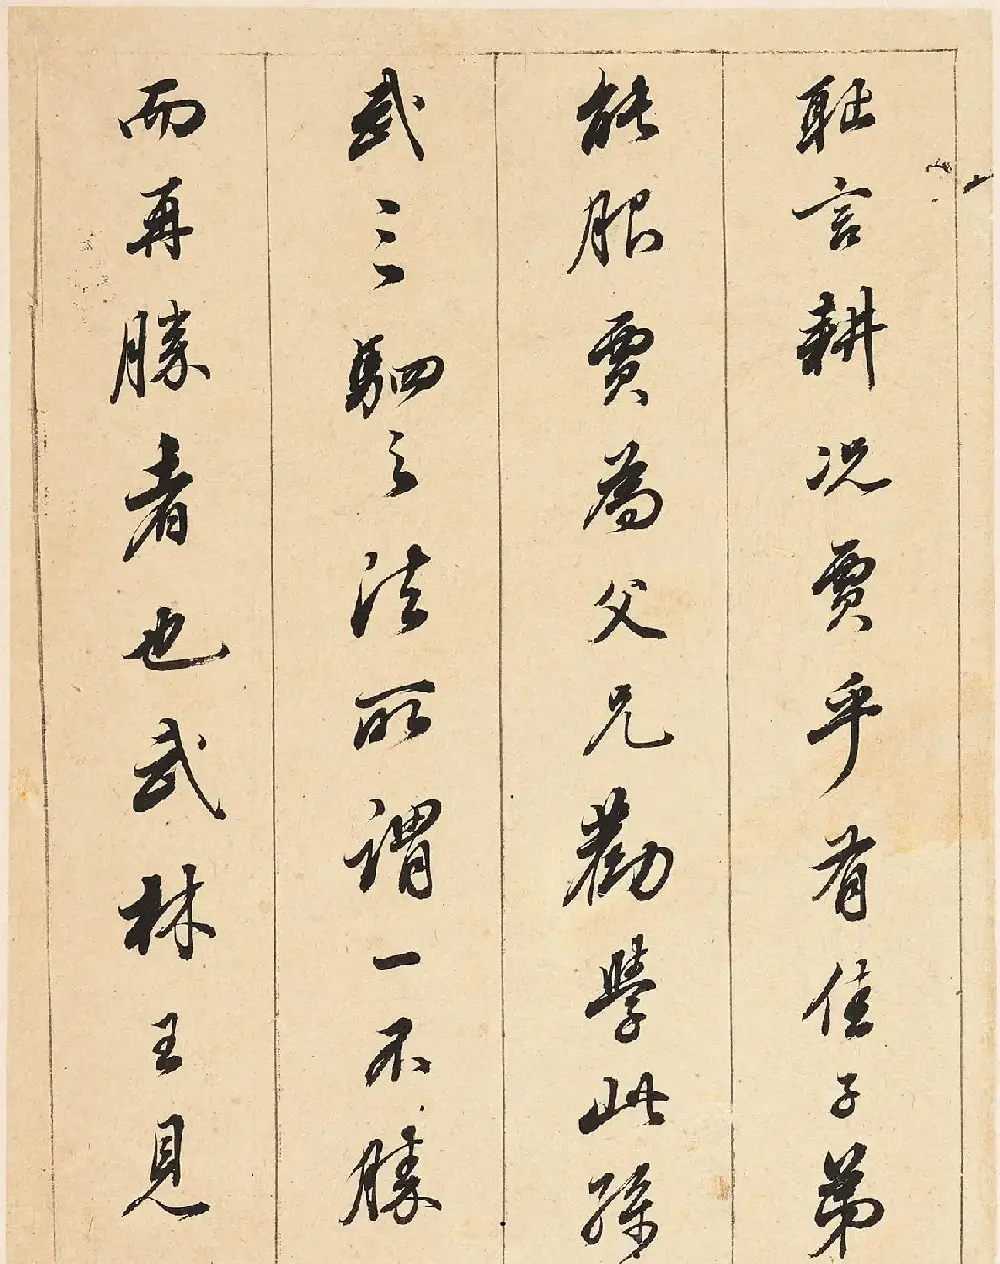 耻言耕况賈乎有佳子弟
能服賈為父兄勸學此孫
武三駟之法所謂一不勝
而再勝者也武林王見